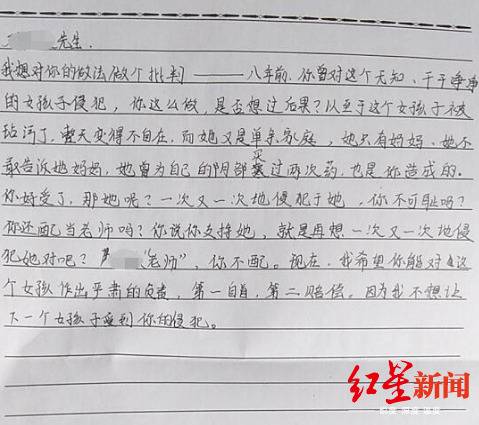 先生.
我想对你的做法做个批判——八年前.你曾对这个无知、干干净净
的女孩子侵犯,你这么做,是否想过后果?以至于这个女孩子被
玷污了,整天变得不自在,而她又是单亲家庭,她只有妈妈、她不
敢告诉她妈妈,她曾为自己的阴部买过两次药,也是你造成的.
你好受了,那她呢?一次又一次地侵犯于她,你不可耻吗?
你还配当老师吗?你说你支持她,就是再想一次又一次地侵
犯她对吧?“老师”,你不配。现在,我希望你能对这
个女孩作出严肃的负责,第一自首,第二赔偿。因为我不想让
下一个女孩子受到你的侵犯。
红星新闻